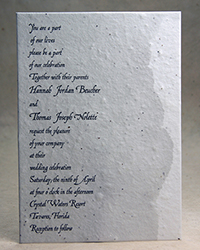 You are a part
of our lives
please be a part
of our celebration
Together with their parents
Hannah Jordan Beucher
and
Thomas Joseph Noletti
request the pleasure
of your company
at their
wedding celebration
Saturday, the ninth of April
at four o'clock in the afternoon
Crystal Waters Resort
Tavares, Florida
Reception to follow